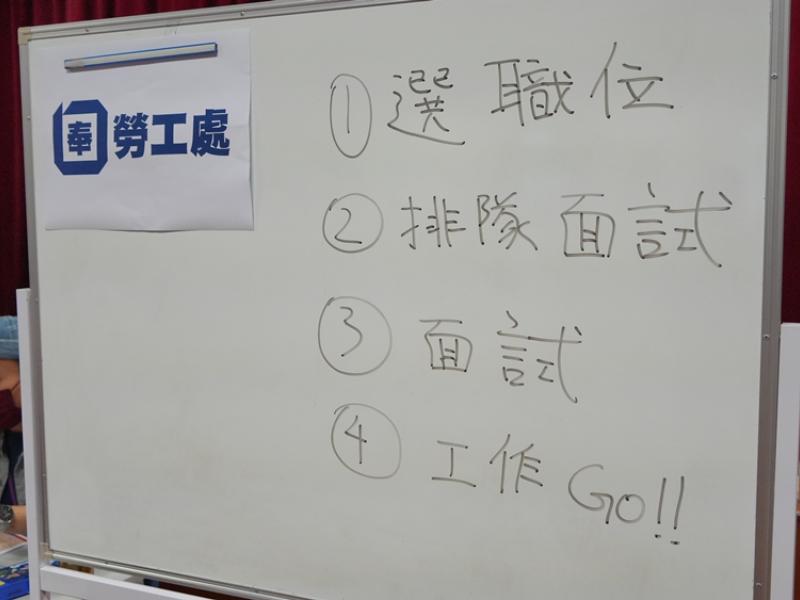 奉 勞工處
① 選職位
② 排隊面試
③ 面試
④ 工作 Go!!